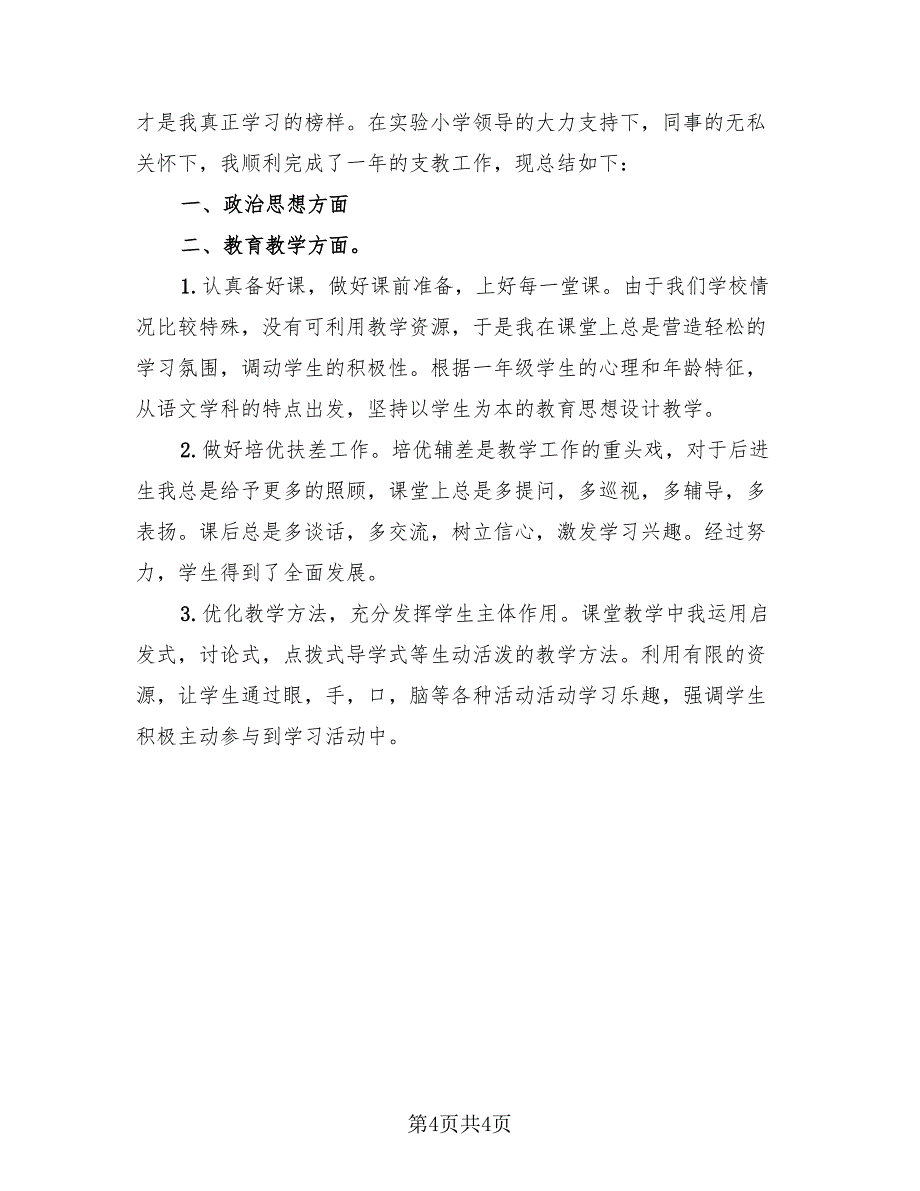 才是我真正学习的榜样。在实验小学领导的大力支持下，同事的无私
关怀下，我顺利完成了一年的支教工作，现总结如下：
一、政治思想方面
二、教育教学方面。
1.认真备好课，做好课前准备，上好每一堂课。由于我们学校情
况比较特殊，没有可利用教学资源，于是我在课堂上总是营造轻松的
学习氛围，调动学生的积极性。根据一年级学生的心理和年龄特征，
从语文学科的特点出发，坚持以学生为本的教育思想设计教学。
2.做好培优扶差工作。培优辅差是教学工作的重头戏，对于后进
生我总是给予更多的照顾，课堂上总是多提问，多巡视，多辅导，多
表扬。课后总是多谈话，多交流，树立信心，激发学习兴趣。经过努
力，学生得到了全面发展。
3.优化教学方法，充分发挥学生主体作用。课堂教学中我运用启
发式，讨论式，点拨式导学式等生动活泼的教学方法。利用有限的资
源，让学生通过眼，手，口，脑等各种活动活动学习乐趣，强调学生
积极主动参与到学习活动中。
第4页共4页